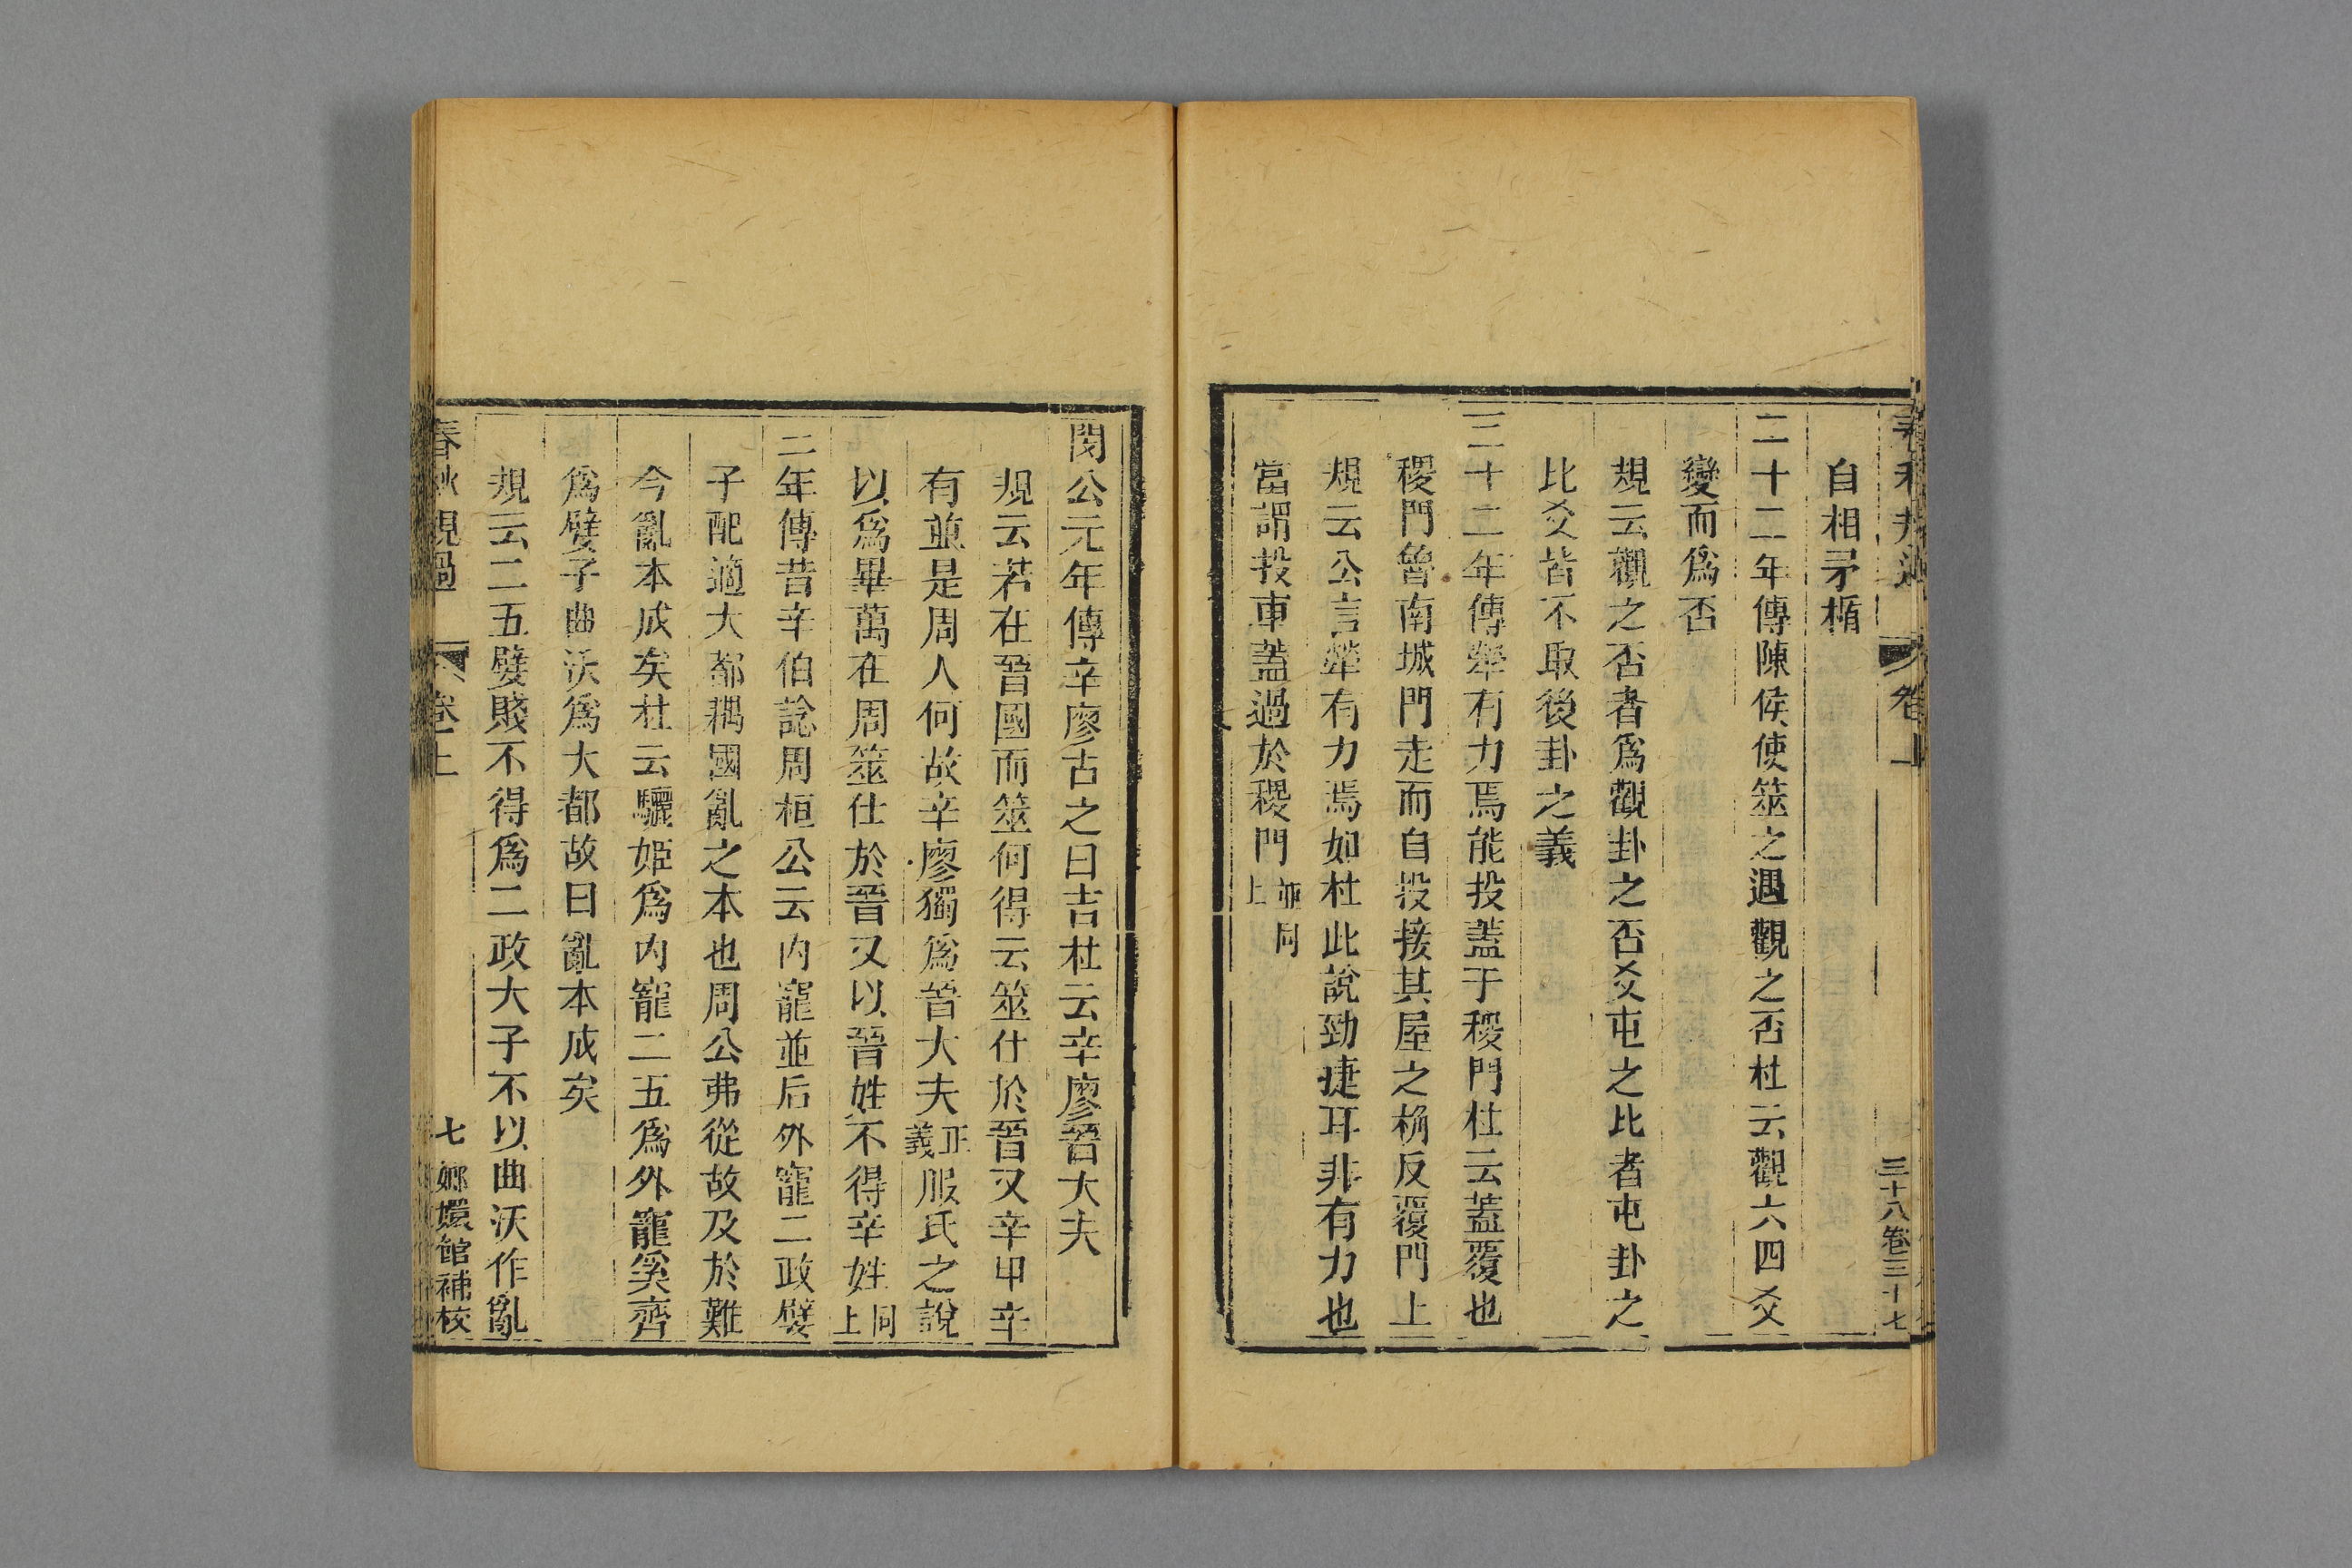 卷上
三十八卷三十七
自相矛楯
二十二年傳陳侯使筮之遇觀之否杜云觀六四爻
變而爲否
規云觀之否者爲觀卦之否爻屯之比者屯卦之
比爻皆不取後卦之義
三十二年傳犖有力焉能投蓋于稷門杜云蓋覆也
稷門魯南城門走而自投接其屋之桷反覆門上
規云公言犖有力焉如杜此說勁捷耳非有力也
當謂投車蓋過於稷門並同上
閔公元年傳辛廖占之曰吉杜云辛廖晉大夫
規云若在晉國而筮何得云筮仕於晉又辛甲辛
有並是周人何故辛廖獨爲晉大夫正義服氏之說
以爲畢萬在周筮仕於晉又以晉姓不得辛姓同上
二年傳昔辛伯諗周桓公云內寵並后外寵二政嬖
子配適大都耦國亂之本也周公弗從故及於難
今亂本成矣杜云驪姬爲內寵二五爲外寵奚齊
爲嬖子曲沃爲大都故曰亂本成矣
規云二五嬖賤不得爲二政大子不以曲沃作亂
春秋規過 卷上 七 嫏嬛館補校